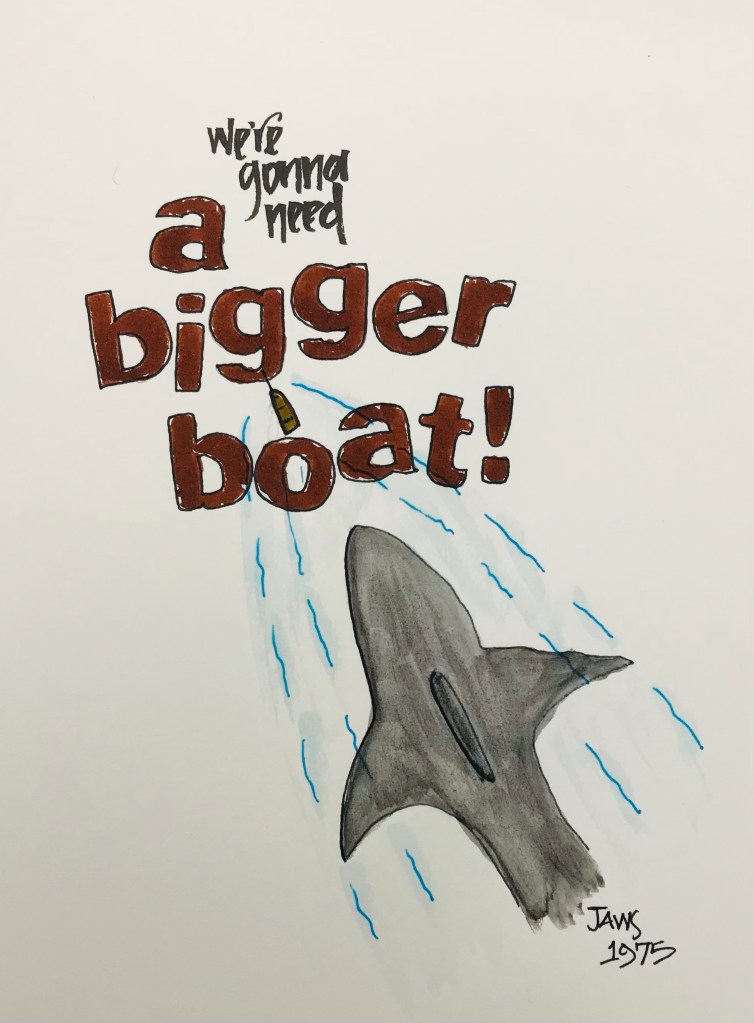 we're
gonna
need
a
bigger
boat!
JAWS
1975